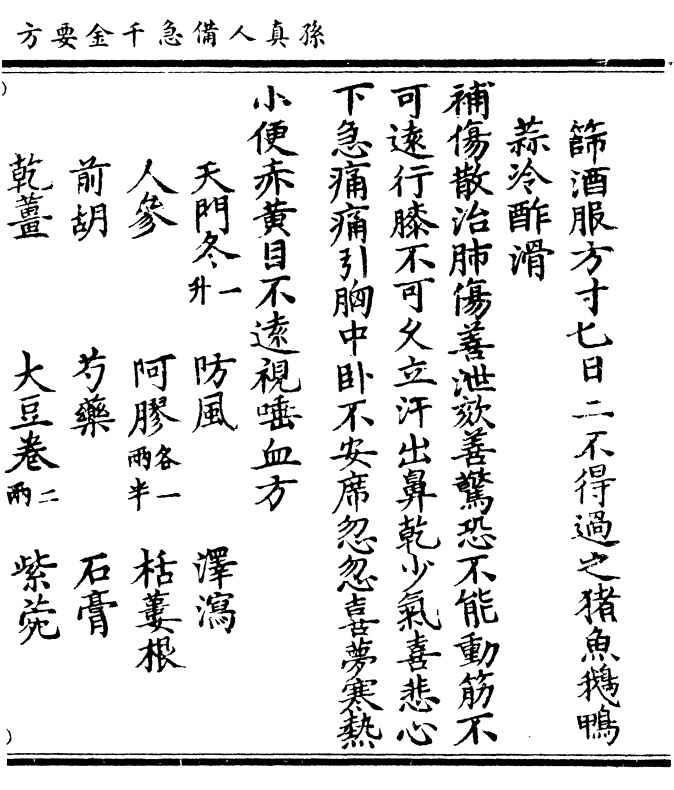 孫真人備急千金要方
篩酒服方寸匕日二不得過之猪魚鵝鴨
蒜冷酢滑
補傷散治肺傷善泄欬善驚恐不能動筋不
可遠行膝不可久立汗出鼻乾少氣喜悲心
下急痛痛引胸中卧不安席忽忽喜夢寒熱
小便赤黄目不遠視唾血方
天門冬一升 防風 澤瀉
人參 阿膠各一兩半 栝蔞根
前胡 芍藥 石膏
乾薑 大豆卷二兩 紫菀